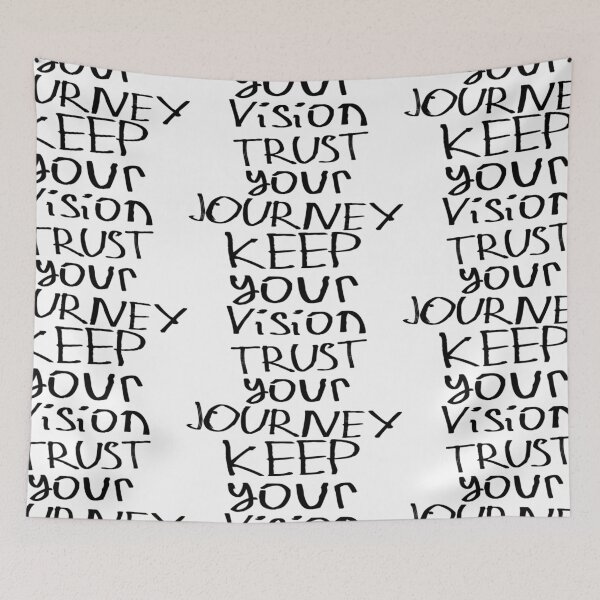 your
OURNEY
KEEP
your
Vision
TRUST
your
OURNEY
KEEP
your
Vision
TRUST
your
OURNEY
your
Vision
TRUST
your
JOURNEY
KEEP
your
Vision
TRUST
your
JOURNEY
KEEP
your
Vision
your
JOURNE
KEEP
your
Vision
TRUST
your
JOURNE
KEEP
your
Vision
TRUST
your
JOURNE